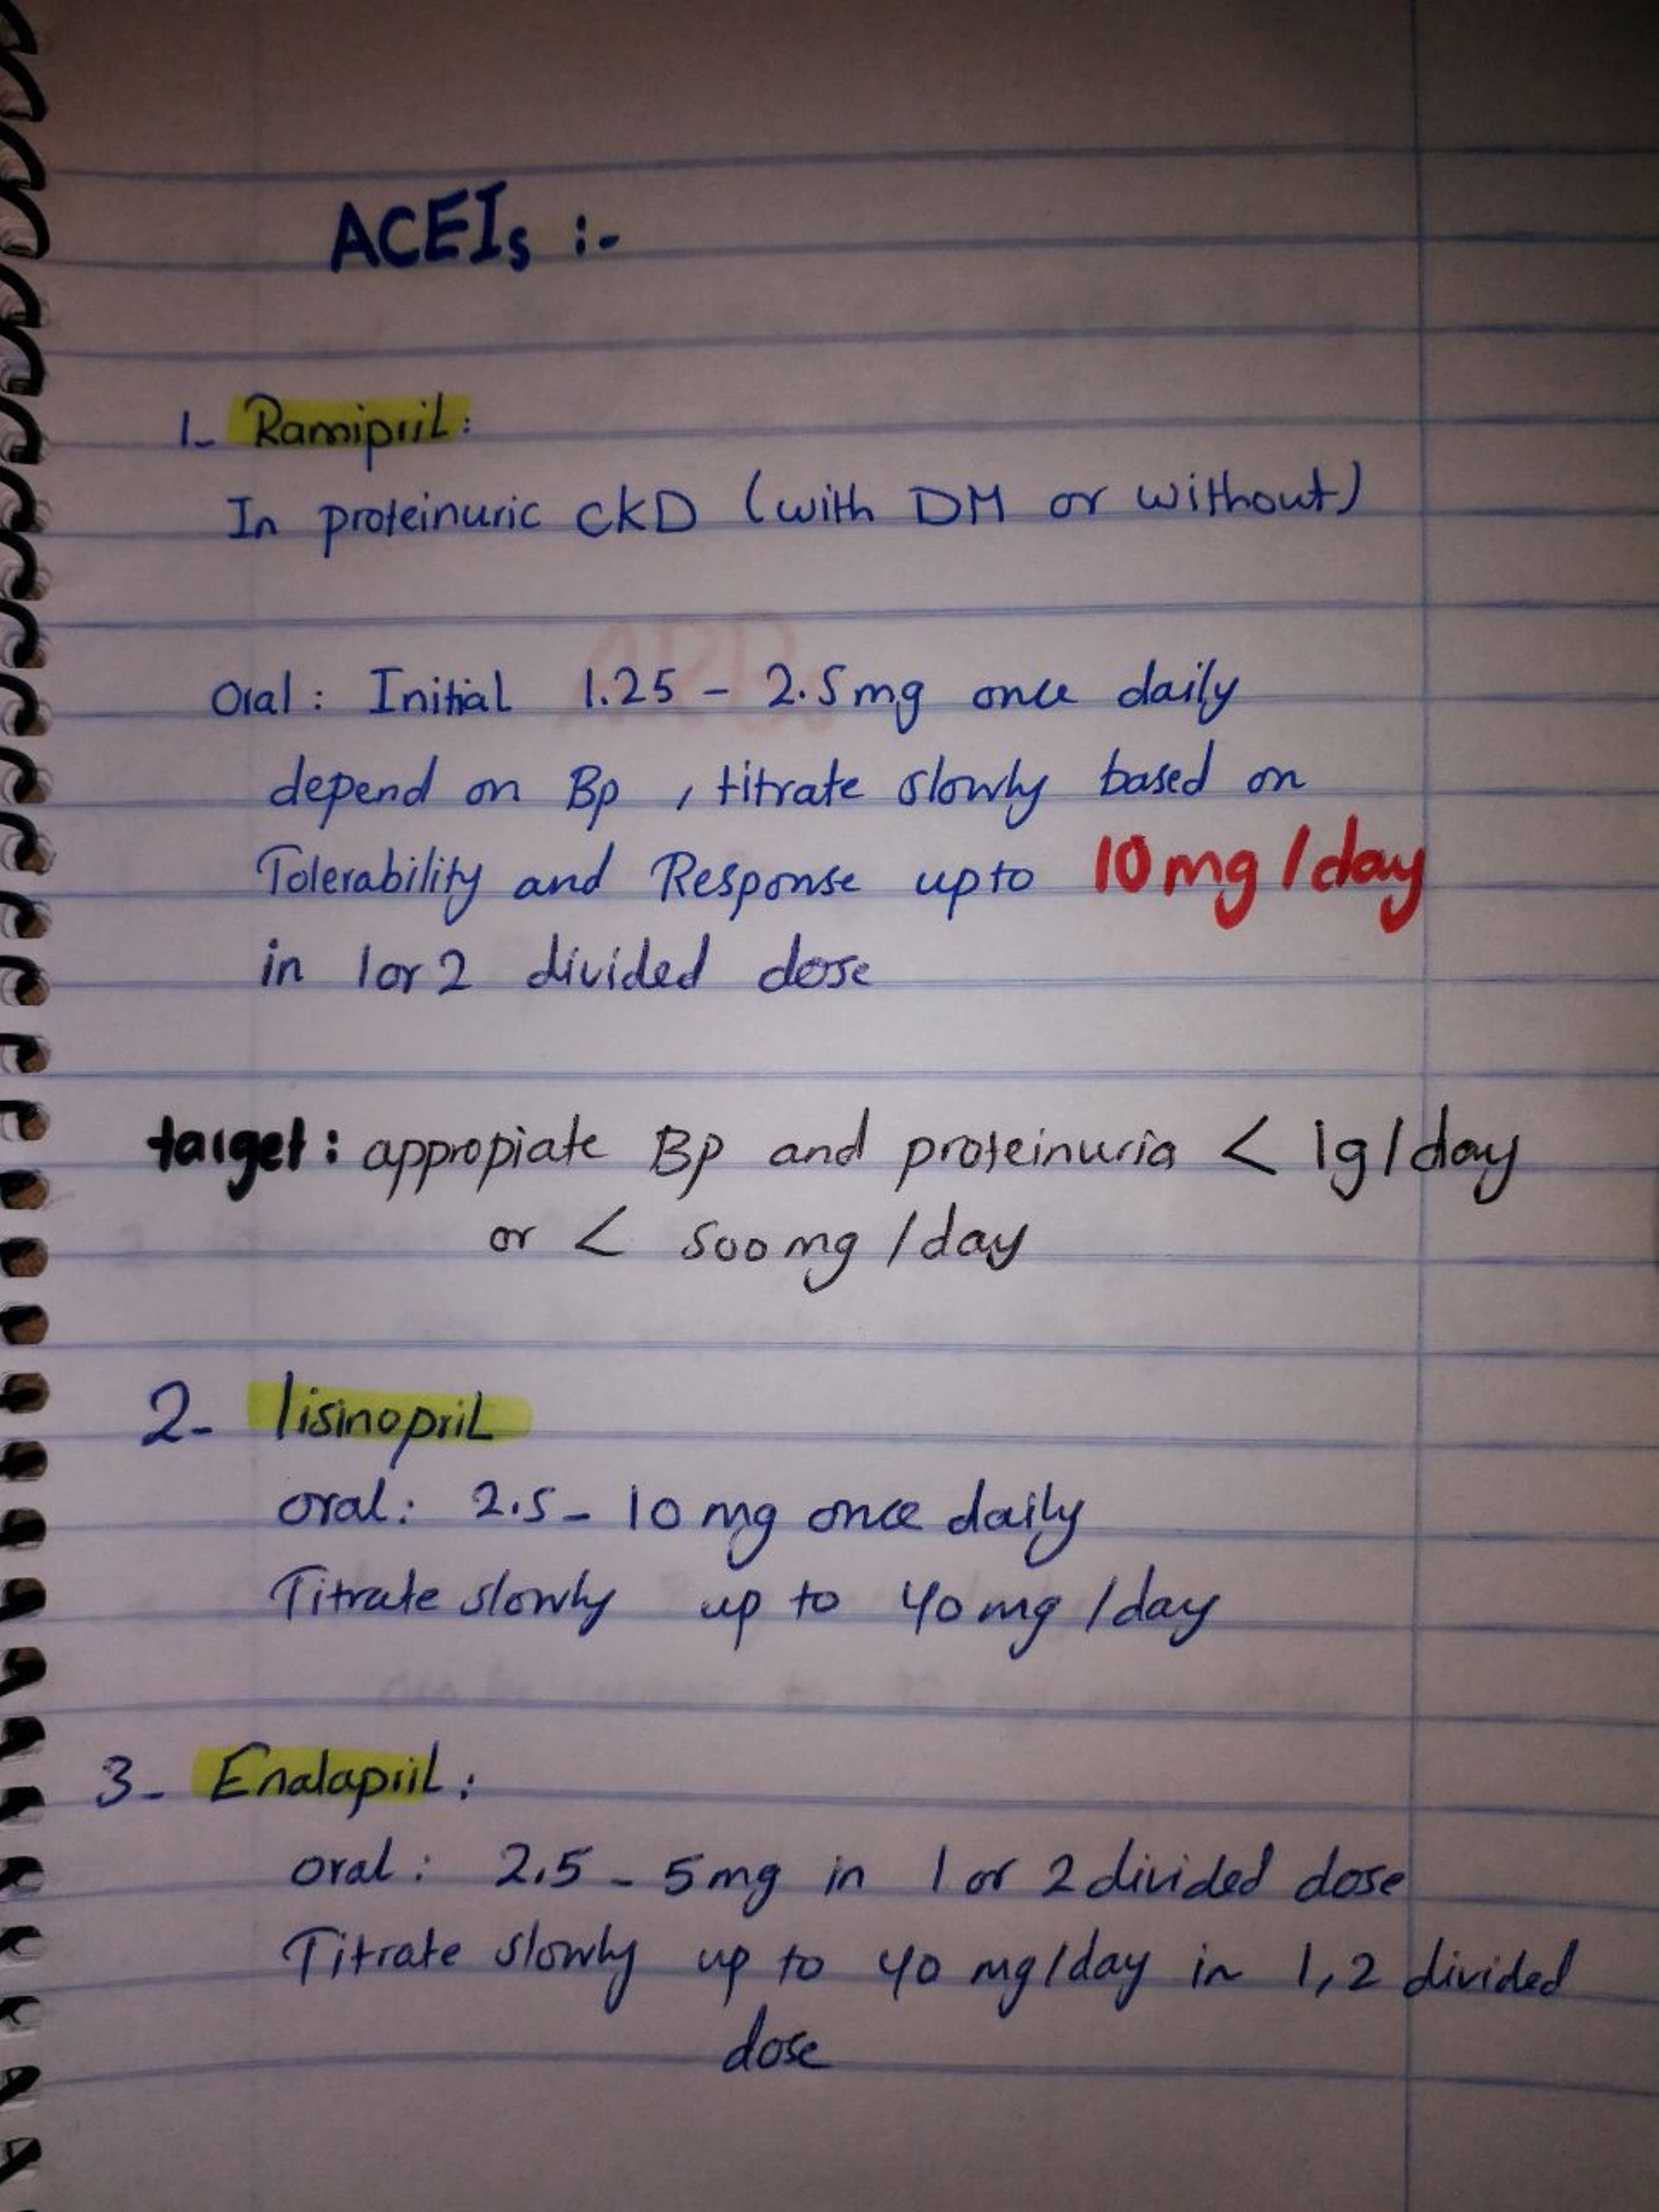 ACEIs :-
1- Ramipril:
In proteinuric CKD (with DM or without)
Oral: Initial 1.25 - 2.5mg once daily
depend on Bp , titrate slowly based on
Tolerability and Response upto 10mg/day
in 1or2 divided dose
target: appropiate Bp and proteinuria < 1g/day
or < 500mg/day
2- lisinopril
oral: 2.5 - 10 mg once daily
Titrate slowly up to 40mg/day
3- Enalapril:
oral: 2.5 - 5mg in 1 or 2 divided dose
Titrate slowly up to 40 mg/day in 1,2 divided
dose